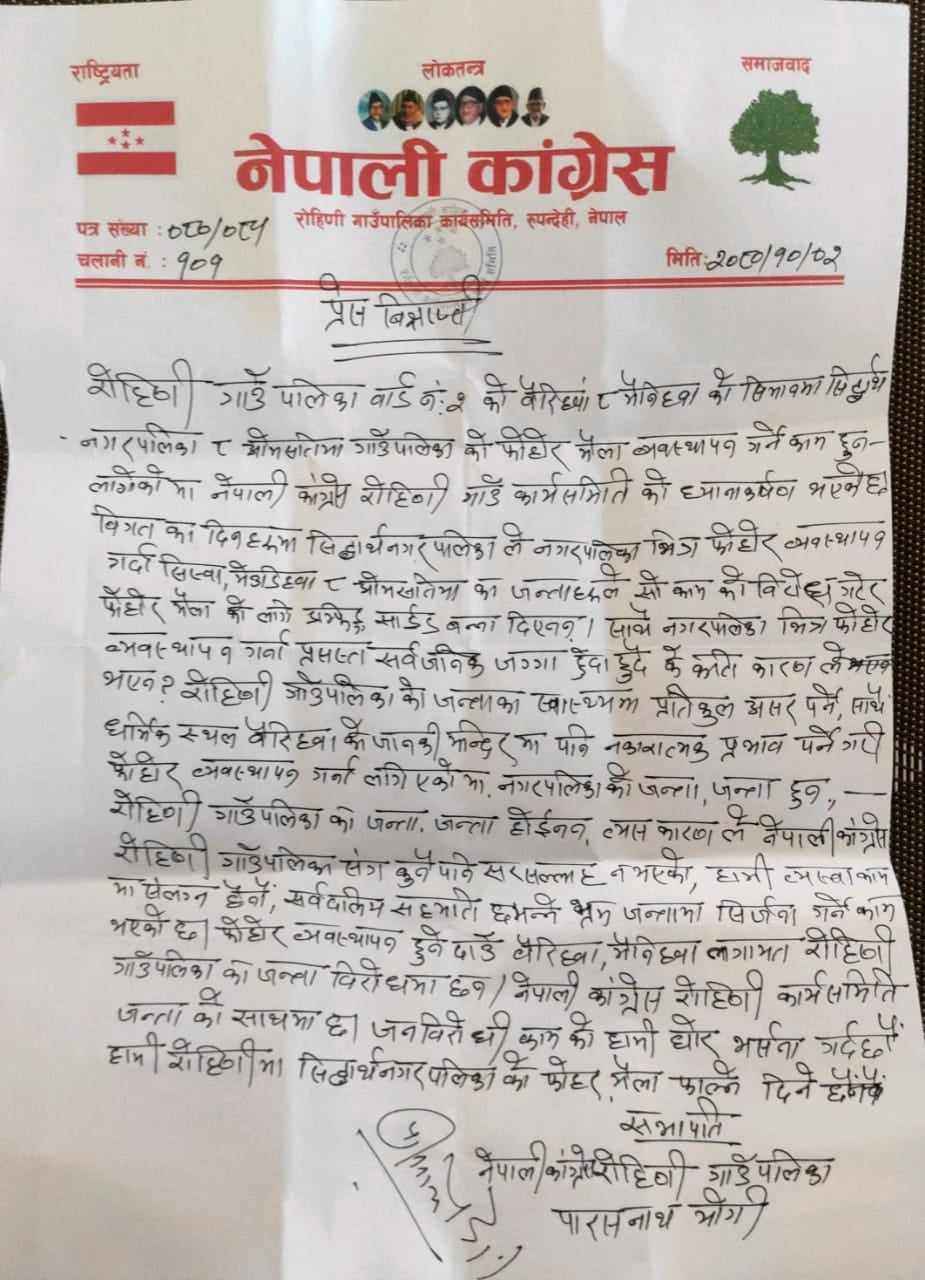 राष्ट्रियता
लोकतन्त्र
समाजवाद
नेपाली कांग्रेस
रोहिणी गाउँपालिका कार्यसमिति, रुपन्देही, नेपाल
पत्र संख्या : ०८०/०८१
चलानी नं. : १०१
मिति: २०८०/१०/०२
प्रेस विज्ञप्ती
रोहिणी गाउँपालिका वार्ड नं: २ को वैरिहवा र मैनिहवा को सिमानामा सिद्धार्थ
नगरपालिका र ओमसतिमा गाउँपालिका को फोहोर मैला व्यवस्थापन गर्ने काम हुन–
लागेको मा नेपाली कांग्रेस रोहिणी गाउँ कार्यसमिति को ध्यानाकर्षण भएको छ
विगत का दिनहरूमा सिद्धार्थनगरपालिका ले नगरपालिका भित्र फोहोर व्यवस्थापन
गर्दा सिस्वा, मेउडिहवा र ओमसतिमा का जन्ताहरूले सो काम को विरोध गरेर
फोहोर मैला को लागि साईड बन्न दिएनन्। साथै नगरपालिका भित्र फोहोर
व्यवस्थापन गर्न प्रसस्त सर्वजनिक जग्गा हुँदा हुदै के कति कारण ले
भएन? रोहिणी गाउँपालिका का जन्ताका स्वास्थ्यमा प्रतिकुल असर पर्ने, साथै
धार्मिक स्थल वैरिहवा को जानकी मन्दिर मा पनि नकारात्मक प्रभाव पर्ने गरी
फोहोर व्यवस्थापन गर्न लागिएको मा, नगरपालिका को जन्ता, जन्ता हुन, –
रोहिणी गाउँपालिका का जन्ता, जन्ता होईनन, त्यस कारण ले नेपाली कांग्रेस
रोहिणी गाउँपालिका संग कुनै पनि सरसल्लाह न भएको, हामी त्यस्ता काम
मा संलग्न छैनौं, सर्वदलिय सहमति छ भन्ने भ्रम जन्तामा सिर्जना गर्ने काम
भएको छ। फोहोर व्यवस्थापन हुने ठाउँ वैरिहवा, मैनिहवा लगायत रोहिणी
गाउँपालिका का जन्ता विरोधमा छन। नेपाली कांग्रेस रोहिणी कार्यसमिति
जन्ता को साथमा छ। जनविरोधी काम को हामी घोर भर्सना गर्दछौं
हामी रोहिणीमा सिद्धार्थनगरपालिका को फोहर मैला फाल्न दिने छैनौं
सभापति
नेपाली कांग्रेस रोहिणी गाउँपालिका
पारसनाथ योगी